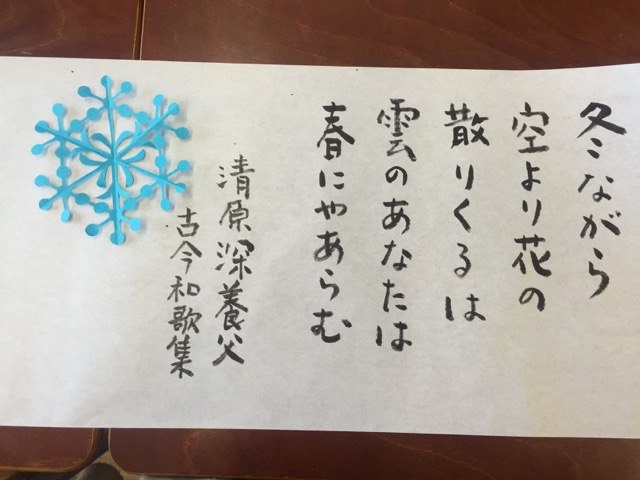 冬ながら
空より花の
散りくるは
雲のあなたは
春にやあらむ
清原深養父
古今和歌集